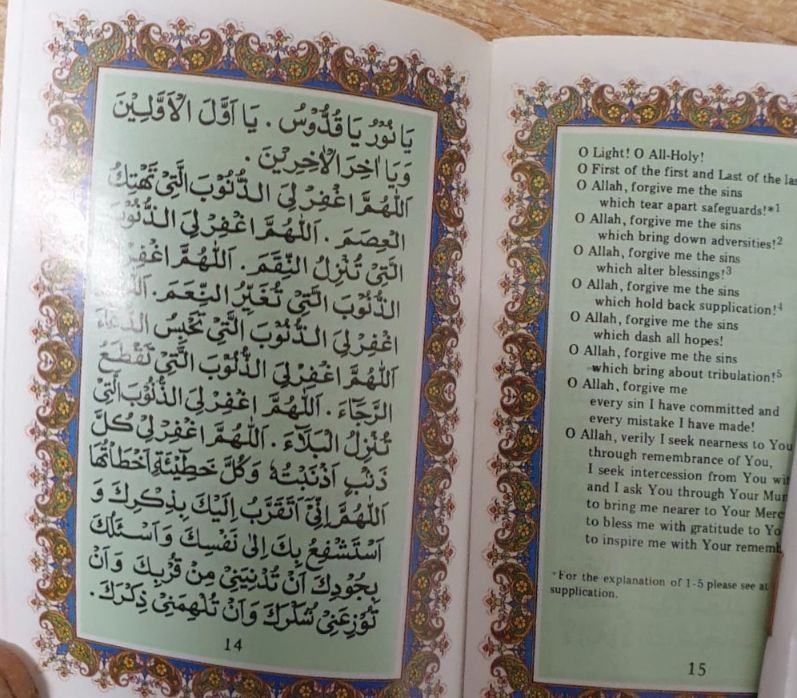 يَا نُوْرُ يَا قُدُّوْسُ . يَا اَوَّلَ الْاَوَّلِيْنَ
وَيَا اٰخِرَ الْاٰخِرِيْنَ .
اَللّٰهُمَّ اغْفِرْ لِيَ الذُّنُوْبَ الَّتِيْ تَهْتِكُ
الْعِصَمَ . اَللّٰهُمَّ اغْفِرْ لِيَ الذُّنُوْبَ
الَّتِيْ تُنْزِلُ النِّقَمَ . اَللّٰهُمَّ اغْفِرْ
الذُّنُوْبَ الَّتِيْ تُغَيِّرُ النِّعَمَ .
اغْفِرْ لِيَ الذُّنُوْبَ الَّتِيْ تَحْبِسُ الدُّعَاءَ
اَللّٰهُمَّ اغْفِرْ لِيَ الذُّنُوْبَ الَّتِيْ تَقْطَعُ
الرَّجَآءَ . اَللّٰهُمَّ اغْفِرْ لِيَ الذُّنُوْبَ الَّتِيْ
تُنْزِلُ الْبَلَآءَ . اَللّٰهُمَّ اغْفِرْ لِيْ كُلَّ
ذَنْبٍ اَذْنَبْتُهٗ وَكُلَّ خَطِيْئَةٍ اَخْطَأْتُهَا
اَللّٰهُمَّ اِنِّيْ اَتَقَرَّبُ اِلَيْكَ بِذِكْرِكَ وَ
اَسْتَشْفِعُ بِكَ اِلٰى نَفْسِكَ وَ اَسْئَلُكَ
بِجُوْدِكَ اَنْ تُدْنِيَنِيْ مِنْ قُرْبِكَ وَ اَنْ
تُوْزِعَنِيْ شُكْرَكَ وَ اَنْ تُلْهِمَنِيْ ذِكْرَكَ .
14
O Light! O All-Holy!
O First of the first and Last of the
O Allah, forgive me the sins
which tear apart safeguards!*1
O Allah, forgive me the sins
which bring down adversities!2
O Allah, forgive me the sins
which alter blessings!3
O Allah, forgive me the sins
which hold back supplication!4
O Allah, forgive me the sins
which dash all hopes!
O Allah, forgive me the sins
which bring about tribulation!5
O Allah, forgive me
every sin I have committed and
every mistake I have made!
O Allah, verily I seek nearness to You
through remembrance of You,
I seek intercession from You
and I ask You through Your
to bring me nearer to Your
to bless me with gratitude to
to inspire me with Your
*For the explanation of 1-5 please see at
supplication.
15